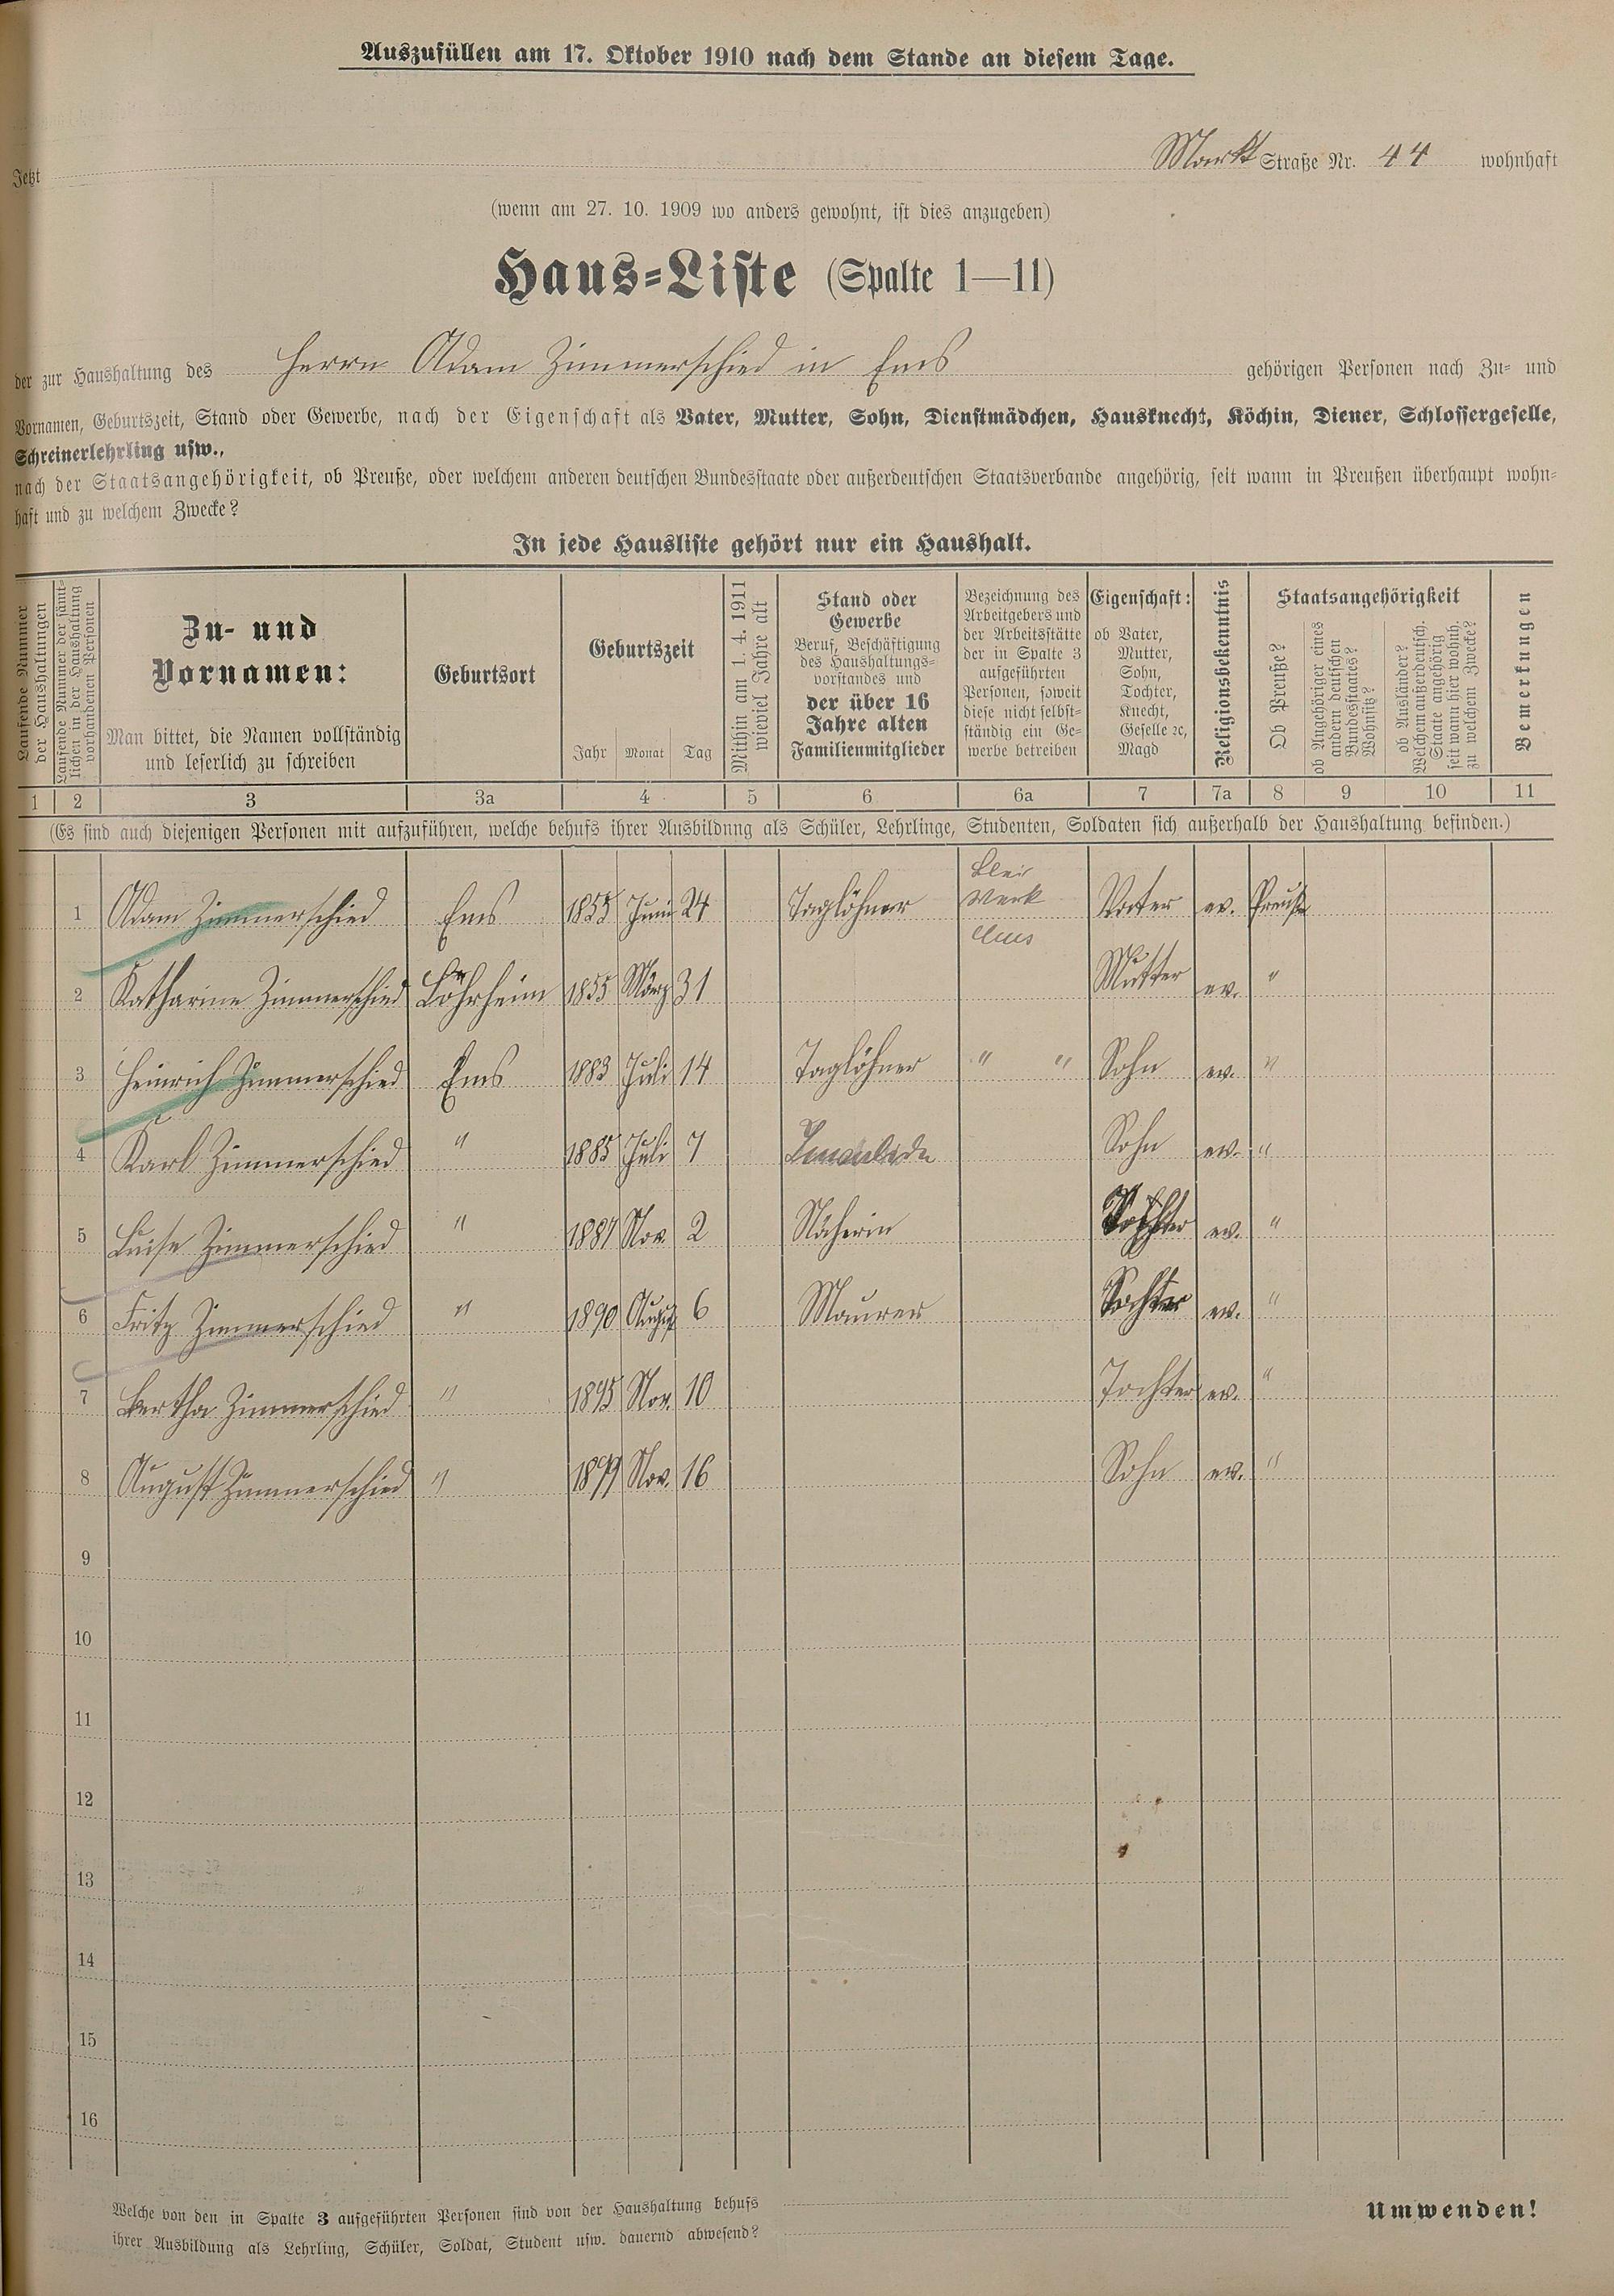 Auszufüllen am 17. Oktober 1910 nach dem Stande an diesem Tage.
Jetzt Markt Straße Nr. 44 wohnhaft
(wenn am 27. 10. 1909 wo anders gewohnt, ist dies anzugeben)
Haus-Liste (Spalte 1—11)
der zur Haushaltung des Herrn Adam Zimmerschied in Ems gehörigen Personen nach Zu- und
Vornamen, Geburtszeit, Stand oder Gewerbe, nach der Eigenschaft als Vater, Mutter, Sohn, Dienstmädchen, Hausknecht, Köchin, Diener, Schlossergeselle,
Schreinerlehrling usw.,
nach der Staatsangehörigkeit, ob Preuße, oder welchem anderen deutschen Bundesstaate oder außerdeutschen Staatsverbande angehörig, seit wann in Preußen überhaupt wohn-
haft und zu welchem Zwecke?
In jede Hausliste gehört nur ein Haushalt.
Laufende Nummer
der Haushaltungen
Laufende Nummer der sämt-
lichen in der Haushaltung
vorhandenen Personen
Zu- und
Vornamen:
Man bittet, die Namen vollständig
und leserlich zu schreiben
Geburtsort
Geburtszeit
Jahr Monat Tag
Mithin am 1. 4. 1911
wieviel Jahre alt
Stand oder
Gewerbe
Beruf, Beschäftigung
des Haushaltungs-
vorstandes und
der über 16
Jahre alten
Familienmitglieder
Bezeichnung des
Arbeitgebers und
der Arbeitsstätte
der in Spalte 3
aufgeführten
Personen, soweit
diese nicht selbst-
ständig ein Ge-
werbe betreiben
Eigenschaft:
ob Vater,
Mutter,
Sohn,
Tochter,
Knecht,
Geselle ꝛc,
Magd
Religionsbekenntnis
Staatsangehörigkeit
Ob Preuße?
ob Angehöriger eines
andern deutschen
Bundesstaates?
Wohnsitz?
ob Ausländer?
Welchem außerdeutsch.
Staate angehörig
seit wann hier wohnh.
zu welchem Zwecke?
Bemerkungen
1 2 3 3a 4 5 6 6a 7 7a 8 9 10 11
(Es sind auch diejenigen Personen mit aufzuführen, welche behufs ihrer Ausbildung als Schüler, Lehrlinge, Studenten, Soldaten sich außerhalb der Haushaltung befinden.)
1 Adam Zimmerschied Ems 1855 Juni 24 Taglöhner Blei Werk Ems Vater ev. Preuße
2 Katharine Zimmerschied Löhrheim 1855 März 31 Mutter ev. "
3 Heinrich Zimmerschied Ems 1883 Juli 14 Taglöhner " " Sohn ev. "
4 Karl Zimmerschied " 1885 Juli 7 Sohn ev. "
5 Luise Zimmerschied " 1887 Nov. 2 Näherin Tochter ev. "
6 Fritz Zimmerschied " 1890 August 6 Maurer ev. "
7 Bertha Zimmerschied " 1895 Nov. 10 Tochter ev. "
8 August Zimmerschied " 1899 Nov. 16 Sohn ev. "
9
10
11
12
13
14
15
16
Welche von den in Spalte 3 aufgeführten Personen sind von der Haushaltung behufs
ihrer Ausbildung als Lehrling, Schüler, Soldat, Student usw. dauernd abwesend?
Umwenden!